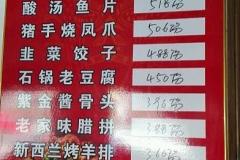 酸汤鱼片 518份
猪手烧凤爪 506份
韭菜饺子 488份
石锅老豆腐 450份
紫金酱骨头 396份
老家味腊拼 388份
新西兰烤羊排 366份